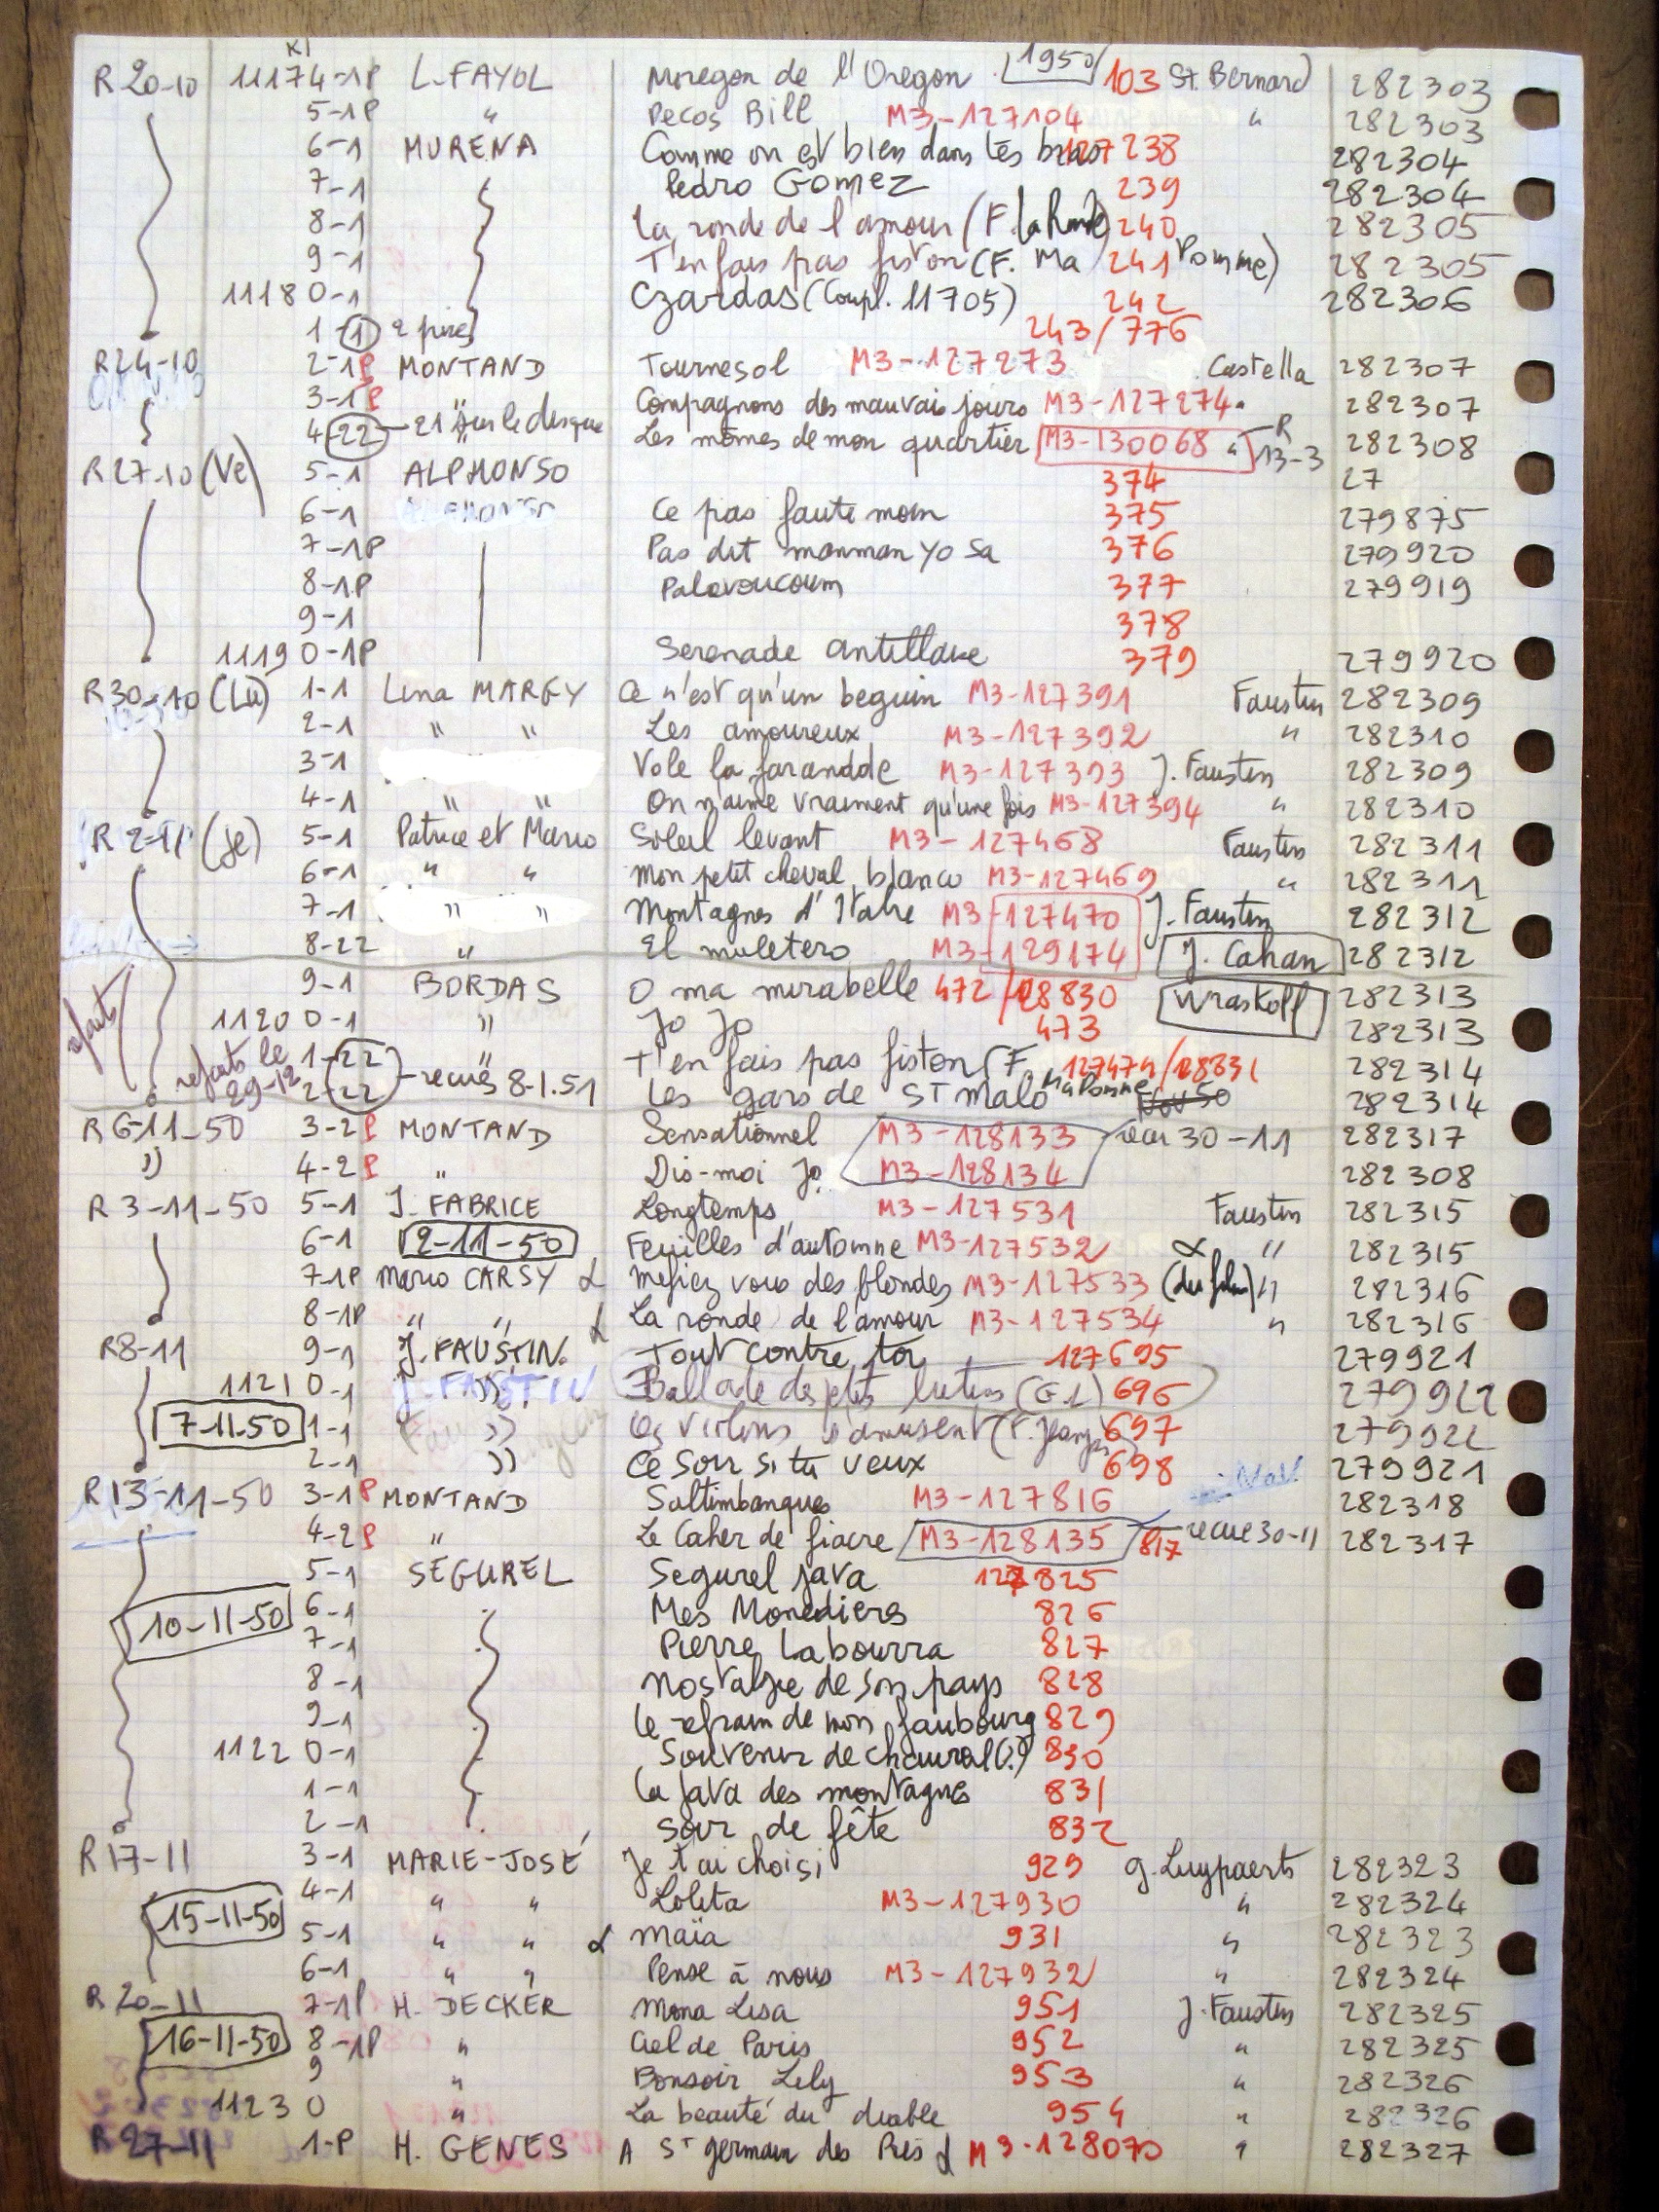 R 20-10 11174-1P L. FAYOL Moregon de l'Oregon 1950 103 St. Bernard 282303
5-1P " Pecos Bill M3-127104 " 282303
6-1 MURENA Comme on est bien dans tes bras 127238 282304
7-1 Pedro Gomez 239 282304
8-1 La ronde de l'amour (F. la Ronde) 240 282305
9-1 T'en fais pas fiston (F. Ma 241 Pomme) 282305
11180-1 Czardas (Coupl. 11705) 242 282306
1-1 2 pires 243/776
R24-10 2-1P MONTAND Tournesol M3-127273 Castella 282307
3-1P " Compagnons des mauvais jours M3-127274 282307
4-22 - 21 sur le disque Les mômes de mon quartier M3-130068 " R 13-3 282308
R27-10 (Ve) 5-1 ALPHONSO 374 27
6-1 Ce pas faute moin 375 279875
7-1P Pas dit manman yo sa 376 279920
8-1P Palavoucoum 377 279919
9-1 378
11190-1P Serenade antillaise 379 279920
R30-10 (Lu) 1-1 Lina MARGY Ce n'est qu'un beguin M3-127391 Faustin 282309
2-1 " " Les amoureux M3-127392 " 282310
3-1 Vole la farandole M3-127393 J. Faustin 282309
4-1 " " On n'aime vraiment qu'une fois M3-127394 " 282310
R 2-11 (je) 5-1 Patrice et Mario Soleil levant M3-127468 Faustin 282311
6-1 " " Mon petit cheval blanco M3-127469 " 282311
7-1 " " Montagnes d'Italie M3-127470 J. Faustin 282312
8-22 " El muletero M3-129174 J. Cahan 282312
9-1 BORDAS O ma mirabelle 472/128830 Wraskoff 282313
11200-1 " Jo Jo 473 282313
refaits refaits le 29-12 1-22 " T'en fais pas fiston (F. Ma Pomme 127474/128831 282314
2-22 - recues 8-1.51 Les gars de St Malo Nov 50 282314
R6-11-50 3-2P MONTAND Sensationnel M3-128133 recu 30-11 282317
" 4-2P " Dis-moi Jo M3-128134 282308
R 3-11-50 5-1 J. FABRICE Longtemps M3-127531 Faustin 282315
6-1 2-11-50 Feuilles d'automne M3-127532 α " 282315
7-1P Mario CARSY α Mefiez vous des blondes M3-127533 (du film) " 282316
8-1P " " α La ronde de l'amour M3-127534 " 282316
R8-11 9-1 J. FAUSTIN Tout contre toi 127695 279921
11210-1 " Ballade des petits lutins (G1) 696 279922
7-11-50 1-1 " Les violons s'amusent 697 279922
2-1 " Ce soir si tu veux 698 279921
R13-11-50 3-1P MONTAND Saltimbanques M3-127816 Nov. 282318
4-2P " Le Cocher de fiacre M3-128135 817 recue 30-11 282317
5-1 SEGUREL Segurel java 127825
10-11-50 6-1 Mes Monedieres 826
7-1 Pierre Labourra 827
8-1 Nostalgie de son pays 828
9-1 Le refrain de mon faubourg 829
11220-1 Souvenir de (?) 830
1-1 La java des montagnes 831
2-1 Soir de fête 832
R17-11 3-1 MARIE-JOSÉ Je t'ai choisi 929 G. Luypaerts 282323
15-11-50 4-1 " " Lolita M3-127930 " 282324
5-1 " " α Maïa 931 " 282323
6-1 " " Pense à nous M3-127932 " 282324
R 20-11 7-1P H. DECKER Mona Lisa 951 J. Faustin 282325
16-11-50 8-1P " Ciel de Paris 952 " 282325
9 " Bonsoir Lily 953 " 282326
11230 " La beauté du diable 954 " 282326
R27-11 1-P H. GENES A St germain des Prés α M3-128070 " 282327